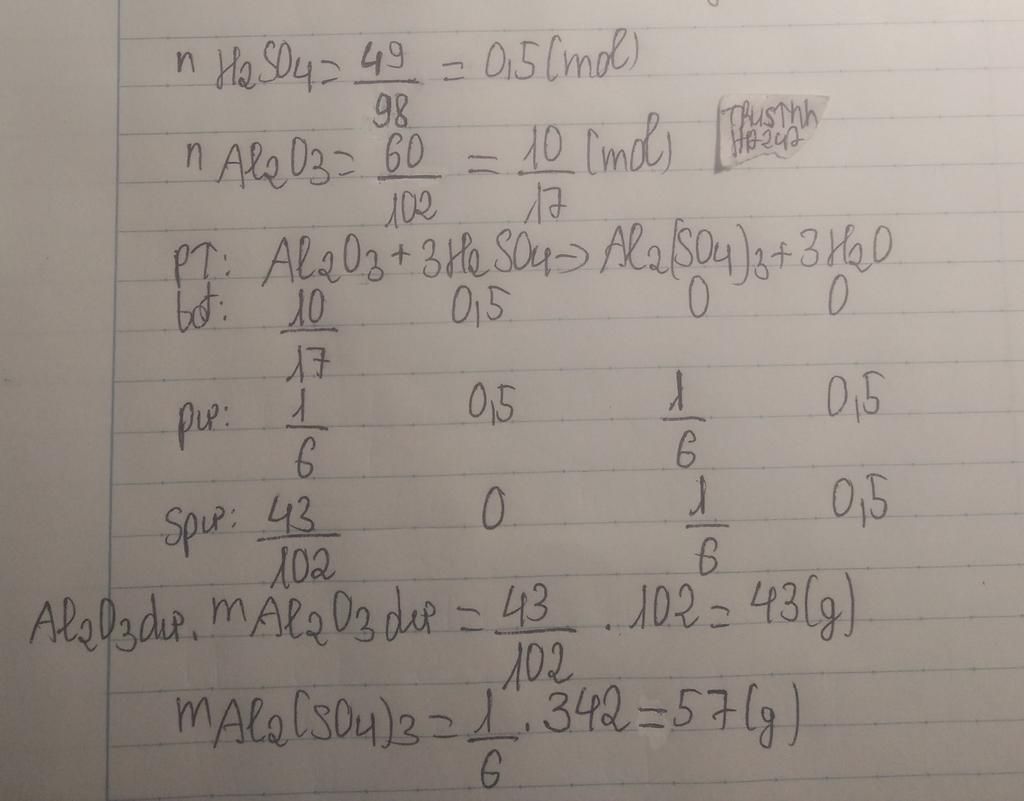 n H2SO4 = 49/98 = 0,5 (mol)
n Al2O3 = 60/102 = 10/17 (mol)
PT: Al2O3 + 3H2SO4 → Al2(SO4)3 + 3H2O
bđ: 10/17 0,5 0 0
pư: 1/6 0,5 1/6 0,5
Spư: 43/102 0 1/6 0,5
Al2O3 dư. mAl2O3 dư = 43/102 . 102 = 43 (g)
mAl2(SO4)3 = 1/6 . 342 = 57 (g)